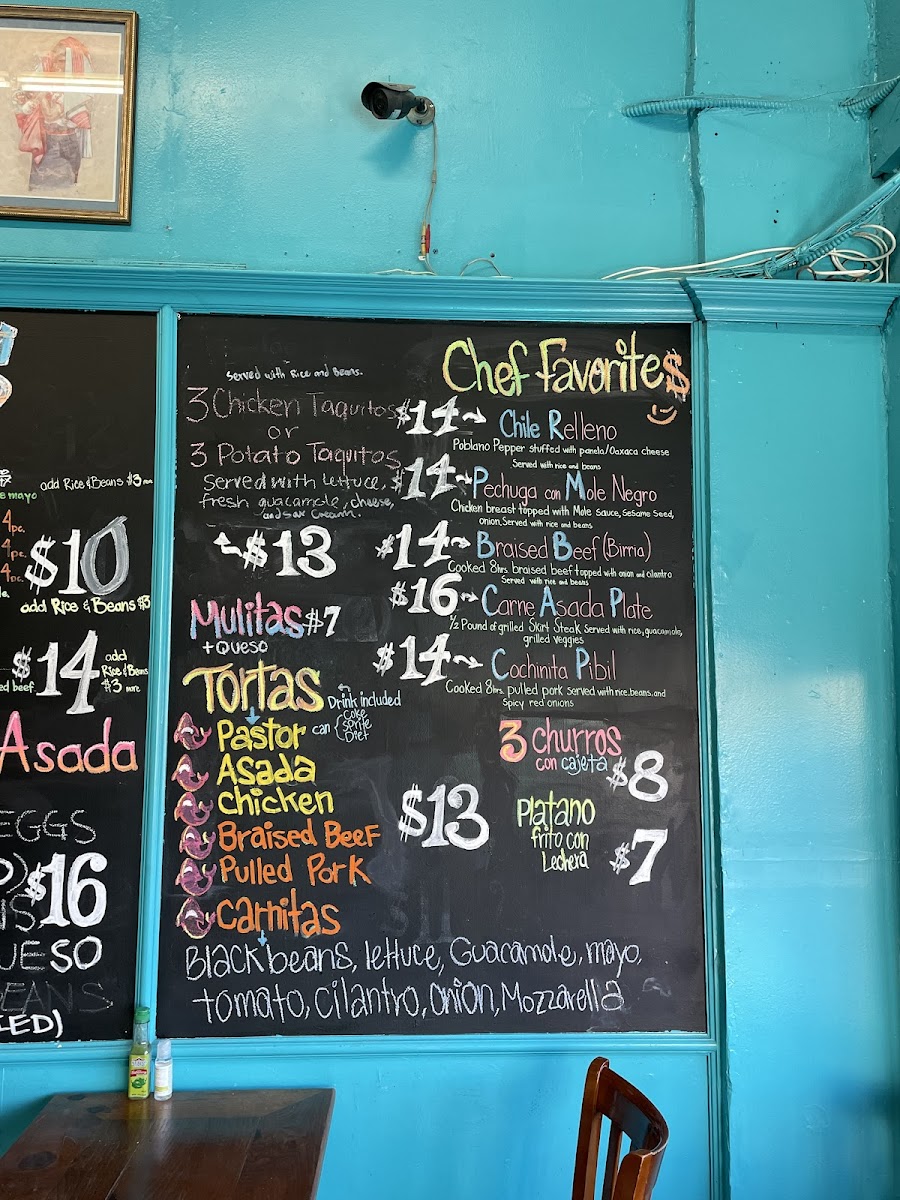 add Rice & Beans $3 more
mayo
4 pc.
4 pc.
4 pc.
$10
add Rice & Beans $3
$14
add
Rice & Beans
$3 more
ed beef
Asada
EGGS
$16
SO
EANS
LED)
Served with Rice and Beans.
3 Chicken Taquitos
or
3 Potato Taquitos
Served with lettuce,
fresh guacamole, cheese,
and sour cream.
$13
Mulitas $7
+ Queso
Tortas
Drink included
can { Coke
Sprite
Diet
Pastor
Asada
chicken
Braised Beef
Pulled Pork
carnitas
$13
Black beans, lettuce, Guacamole, mayo,
tomato, cilantro, onion, Mozzarella
Chef Favorite$
$14 Chile Relleno
Poblano Pepper stuffed with panela/Oaxaca cheese
Served with rice and beans
$14 Pechuga con Mole Negro
Chicken breast topped with Mole sauce, sesame seed,
onion. Served with rice and beans
$14 Braised Beef (Birria)
Cooked 8hrs. braised beef topped with onion and cilantro
Served with rice and beans
$16 Carne Asada Plate
1/2 Pound of grilled Skirt Steak served with rice, guacamole,
grilled veggies
$14 Cochinita Pibil
Cooked 8hrs. pulled pork served with rice, beans, and
Spicy red onions
3 churros
con cajeta
$8
Platano
frito con
Lechera
$7